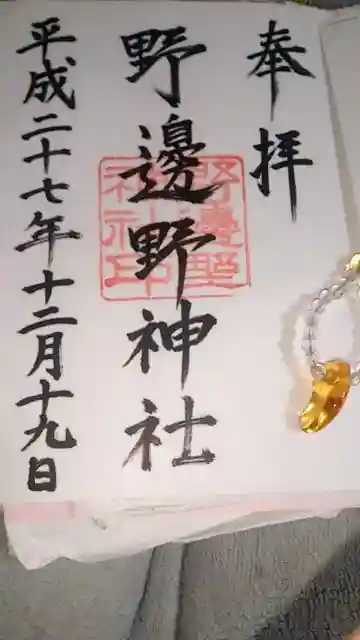 奉拝
野邊野神社
野邊野神社印
平成二十七年十二月十九日